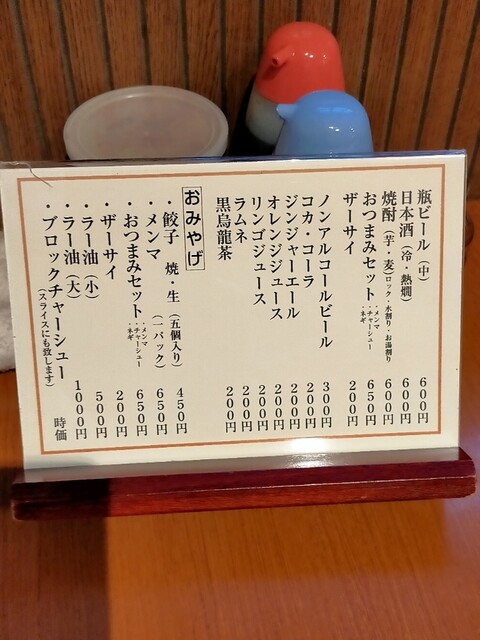 瓶ビール（中） 600円
日本酒（冷・熱燗） 600円
焼酎（芋・麦）ロック・水割り・お湯割り 600円
おつまみセット ・メンマ ・チャーシュー ・ネギ 650円
ザーサイ 200円
ノンアルコールビール 300円
コカ・コーラ 200円
ジンジャーエール 200円
オレンジジュース 200円
リンゴジュース 200円
ラムネ 200円
黒烏龍茶 200円
おみやげ
・餃子 焼・生（五個入り） 450円
・メンマ（一パック） 650円
・おつまみセット ・メンマ ・チャーシュー ・ネギ 650円
・ザーサイ 200円
・ラー油（小） 500円
・ラー油（大） 1000円
・ブロックチャーシュー 時価
（スライスにも致します）